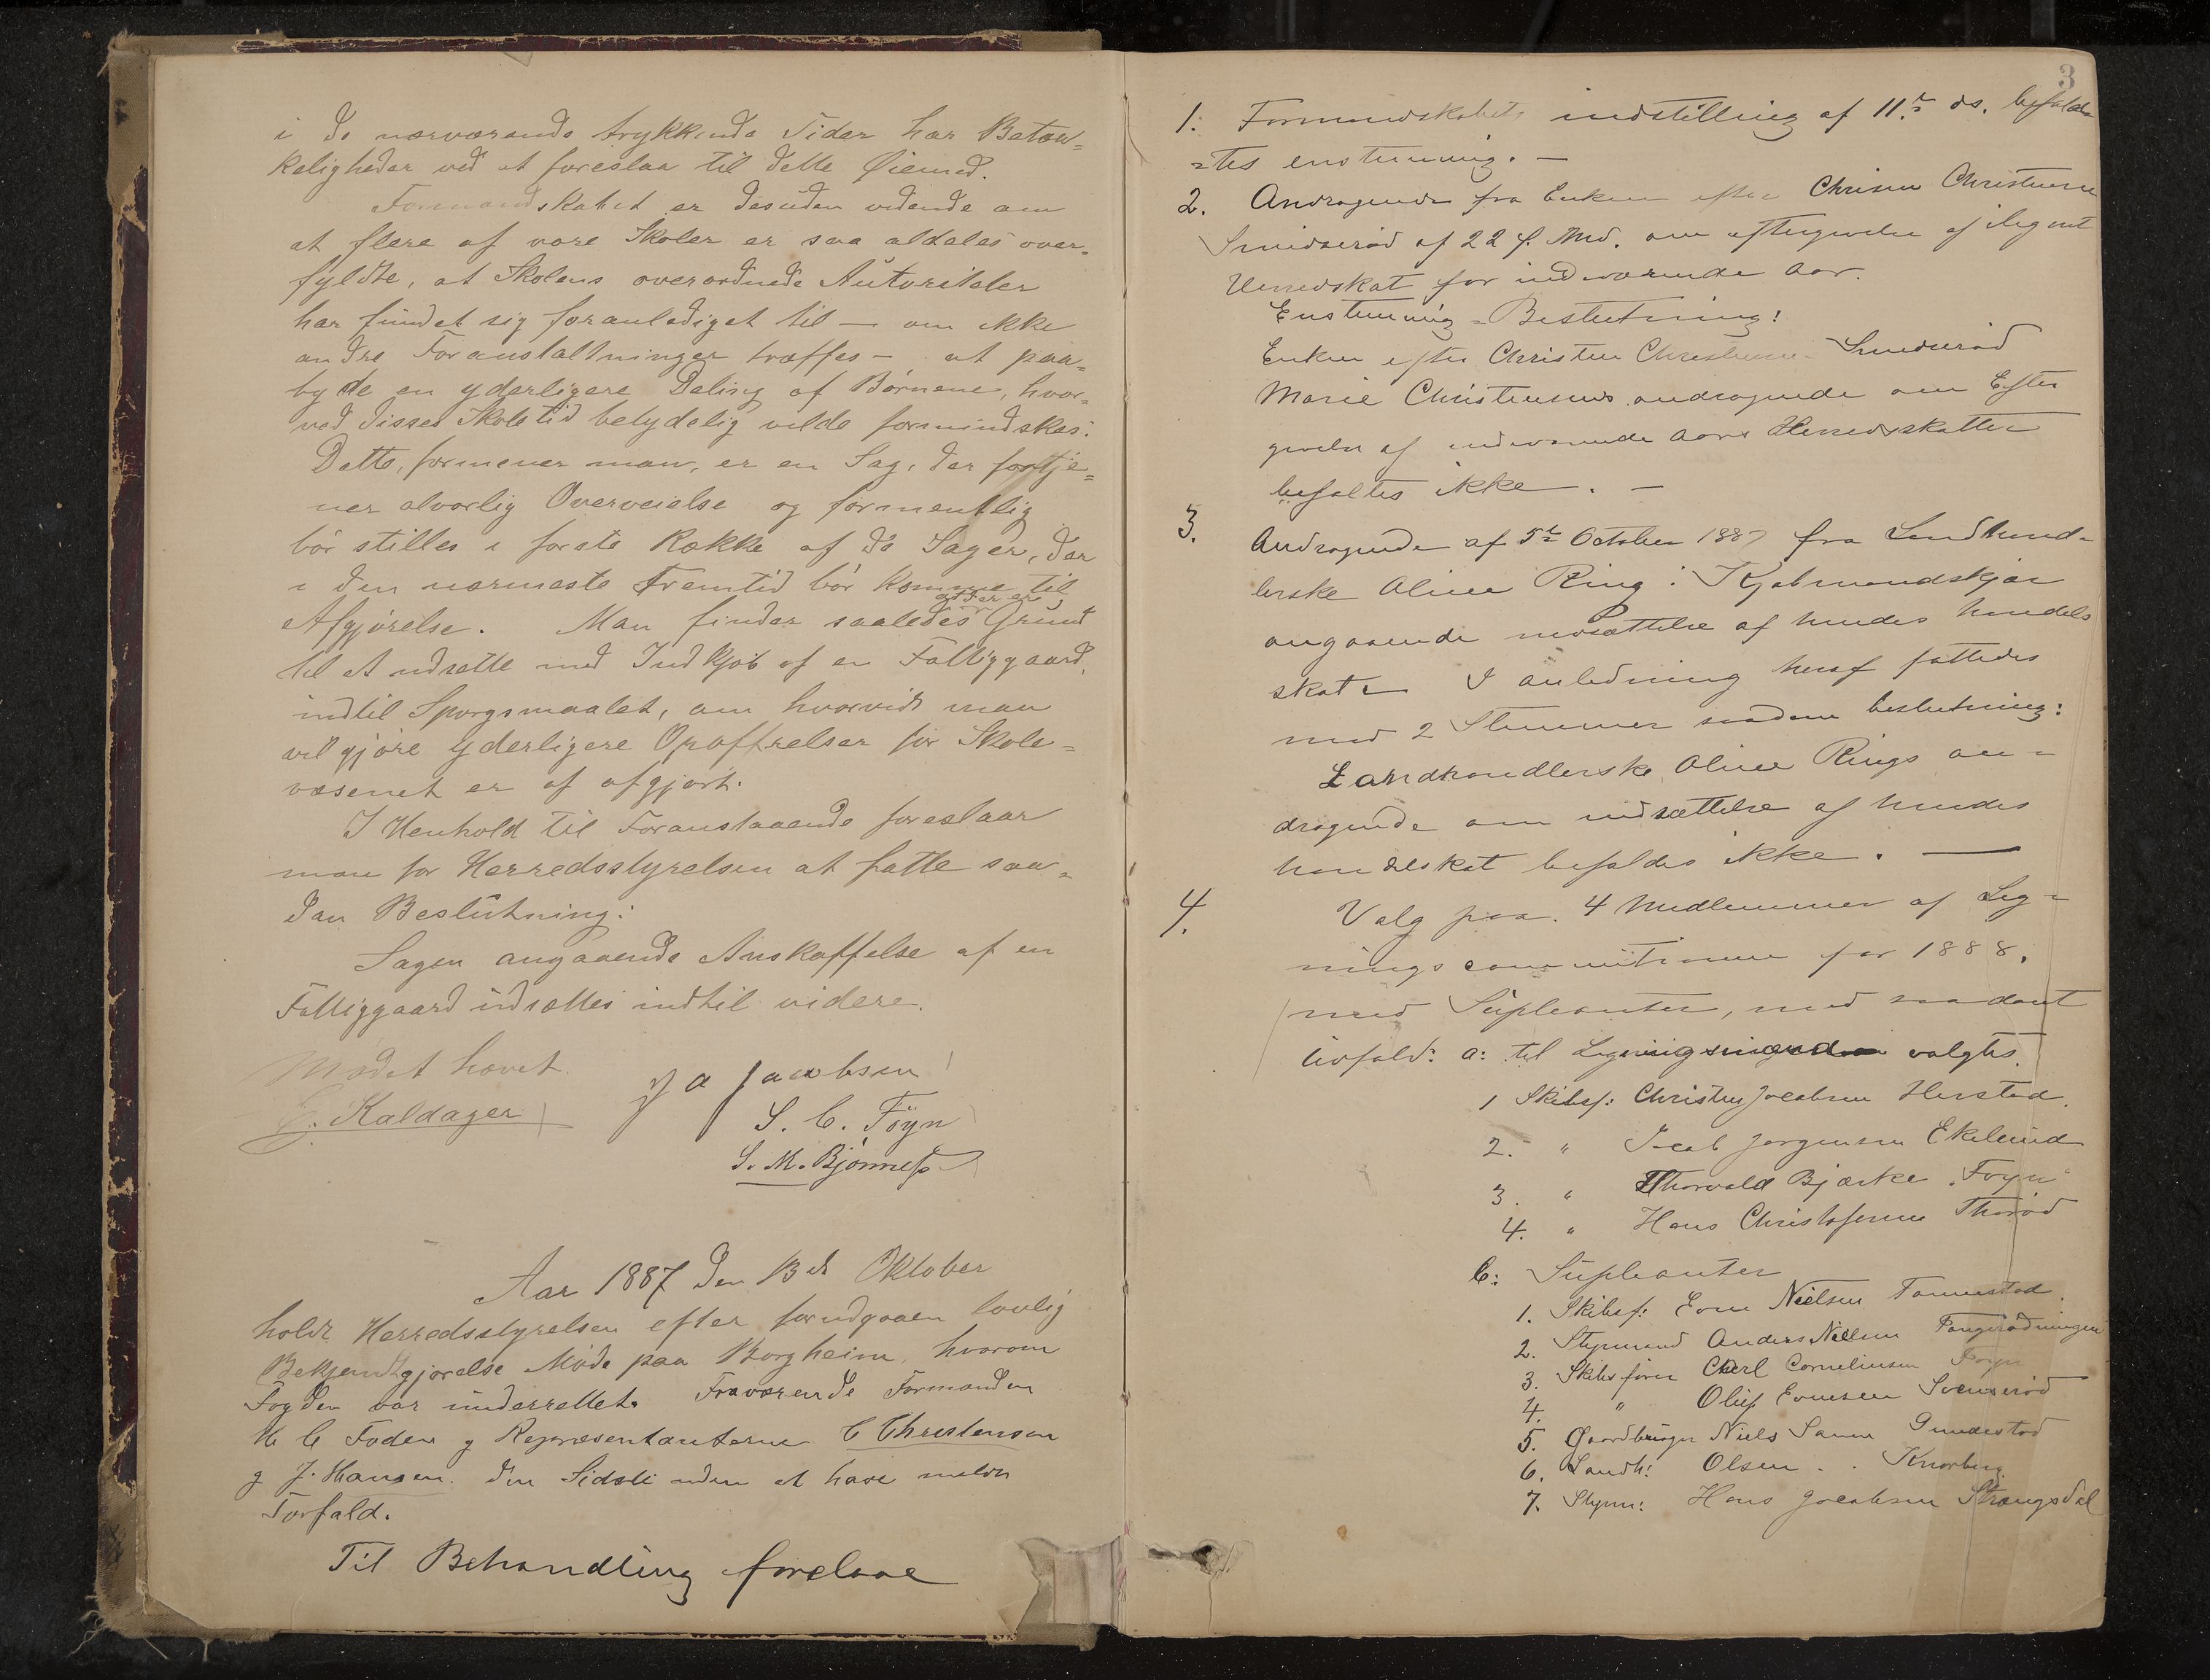 i de nærværende trykkende Tider har Betæn=
keligheder ved at foreslaa til dette Øiemed.
Formandskabet er desuden vidende om
at flere af vore Skoler er saa aldeles over=
fyldte, at Skolens overordnede Autoriteter
har fundet sig foranlediget til — om ikke
andre Foranstaltninger træffes — at paa=
byde en yderligere Deling af Børnene, hvor=
ved disses Skoletid betydelig vilde formindskes.
Dette, formener man, er en Sag, der fortje=
ner alvorlig Overveielse og formentlig
bør stilles i første Række af de Sager, der
i den nærmeste Fremtid bør komme til
Afgjørelse. Man finder saaledes at der er Grund
til at udsætte med Indkjøb af en Fattiggaard,
indtil Spørgsmaalet, om hvorvidt man
vil gjøre yderligere Opoffrelser for Skole=
væsenet er af afgjort.
I Henhold til Foranstaaende foreslaar
man for Herredsstyrelsen at fatte saa=
dan Beslutning:
Sagen angaaende Anskaffelse af en
Fattiggaard udsættes indtil videre.
Mødet hævet.
C. Kaldager
J A Jacobsen
S. C. Föyn
S. M. Bjønnes
Aar 1887 den 13de Oktober
holdt Herredsstyrelsen efter forudgaaen lovlig
Bekjendtgjørelse Møde paa Borgheim, hvorom
Fogden var underrettet. Fraværende Formanden
H C Foden og Repræsentanterne C Christensen
og J. Hansen. Den Sidste uden at have meldt
Forfald.
Til Behandling forelaae
3
1. Formandskabets indstilling af 11te ds. befalde
=tes enstemmig. —
2. Andragende fra Enken efter Chrisen Christensen
Smidserød af 22 f. Md. om eftergivelse af ilignet
Herredskat for indeværende Aar.
Enstemmig = Beslutning!
Enken efter Christen Christensen Smidserød
Marie Christensens andragende om Efter
givelse af indeværende Aars Herredsskatter
befaltes ikke. —
3. Andragende af 5te October 1887 fra Landhand=
lerske Oline Ring i Kjøbmandskjær
angaaende nedsættelse af hendes handels
skat. I anledning heraf fattedes
med 2 Stemmer saadan beslutning:
Landhandlerske Oline Rings an=
dragende om nedsættelse af hendes
handelskat befaldes ikke. —
4. Valg paa 4 Medlemmer af Lig=
ningscommitionen for 1888.
med Supleanter, med saadant
Udfald: a: til Ligningsmænd valgtes
1 Skibsf: Christen Jacobsen Herstad.
2. " Jacob Jørgensen Ekelund
3. " Thorvald Bjærke "Foyn"
4. " Hans Christofersen Thorød
b: Supleanter
1. Skibsf: Even Nielsen Fannestad.
2. Styrmand Anders Nielsen
3. Skibsfører Carl Corneliusen Foyn
4. " Oluf Evensen Svenserød
5. Gaardbruger Niels Gundestad
6. Landh: Olsen . . Knarberg.
7. Styrm: Hans Jacobsen Strengsdal